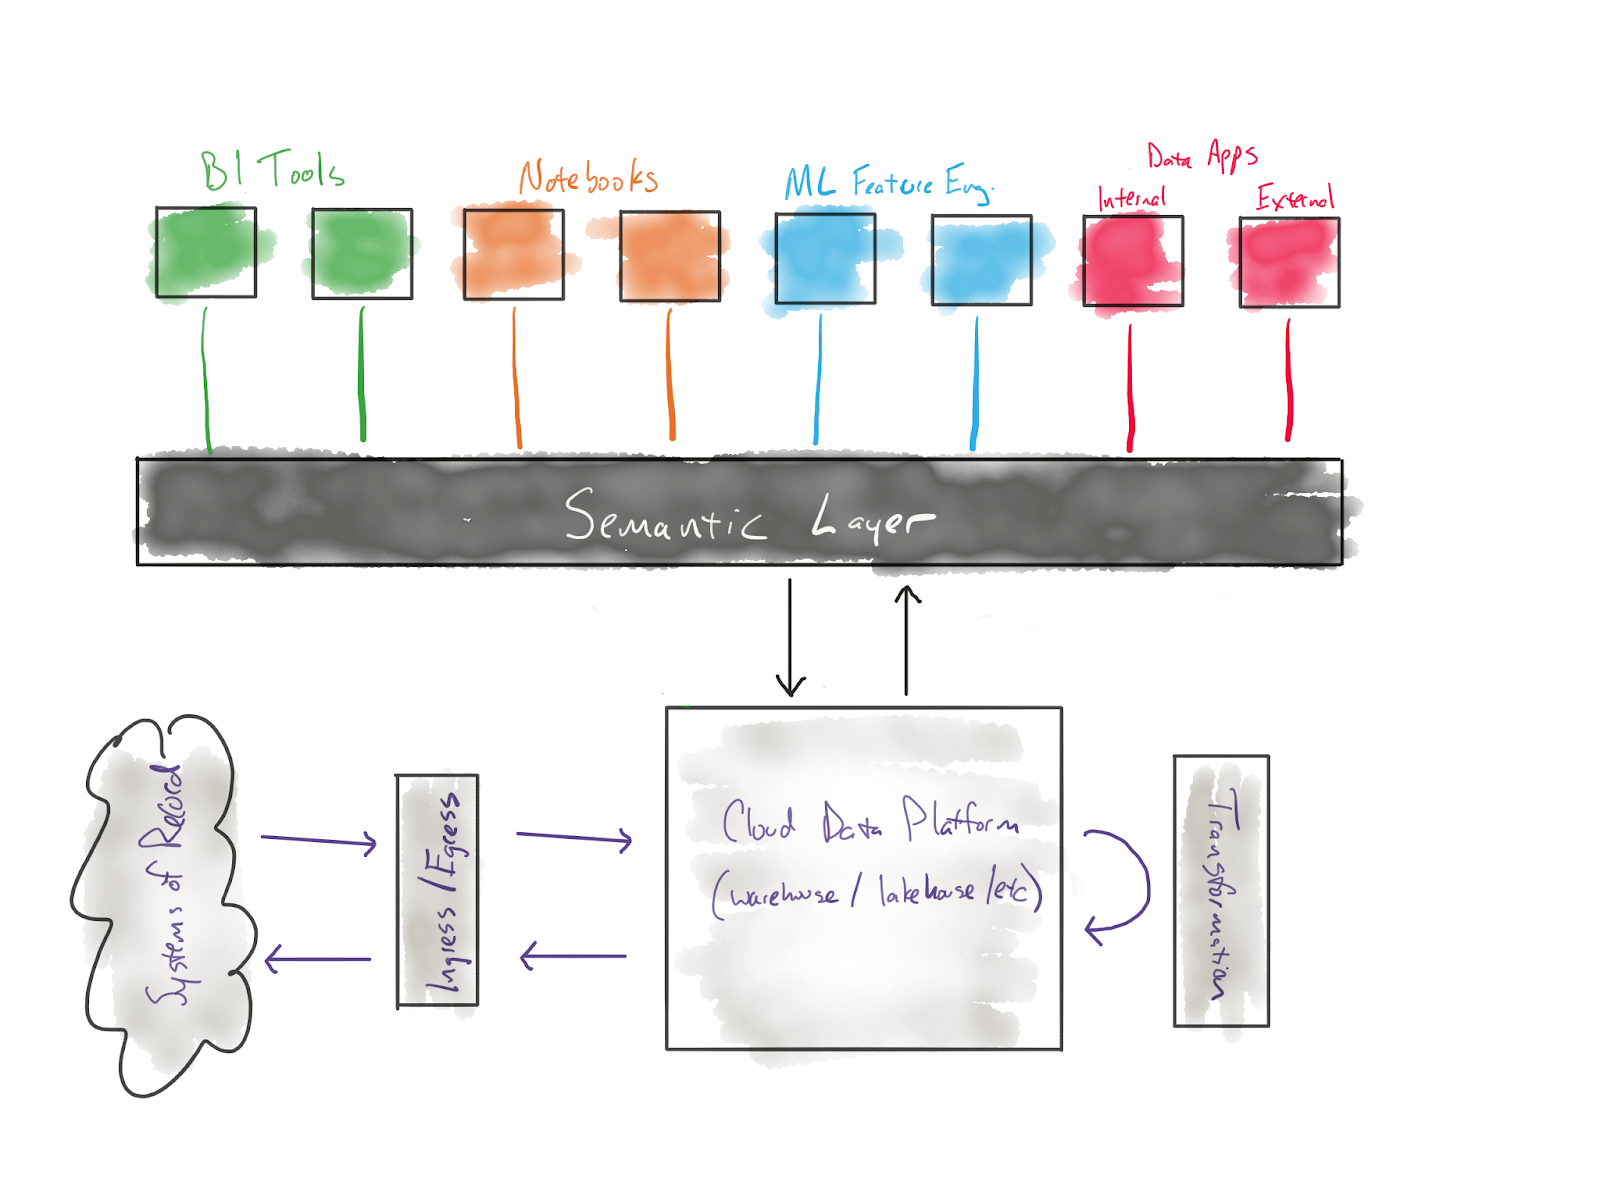 BI Tools
Notebooks
ML Feature Eng.
Data Apps
Internal
External
Semantic Layer
Systems of Record
Ingress/Egress
Cloud Data Platform
(warehouse/lakehouse/etc)
Transformation